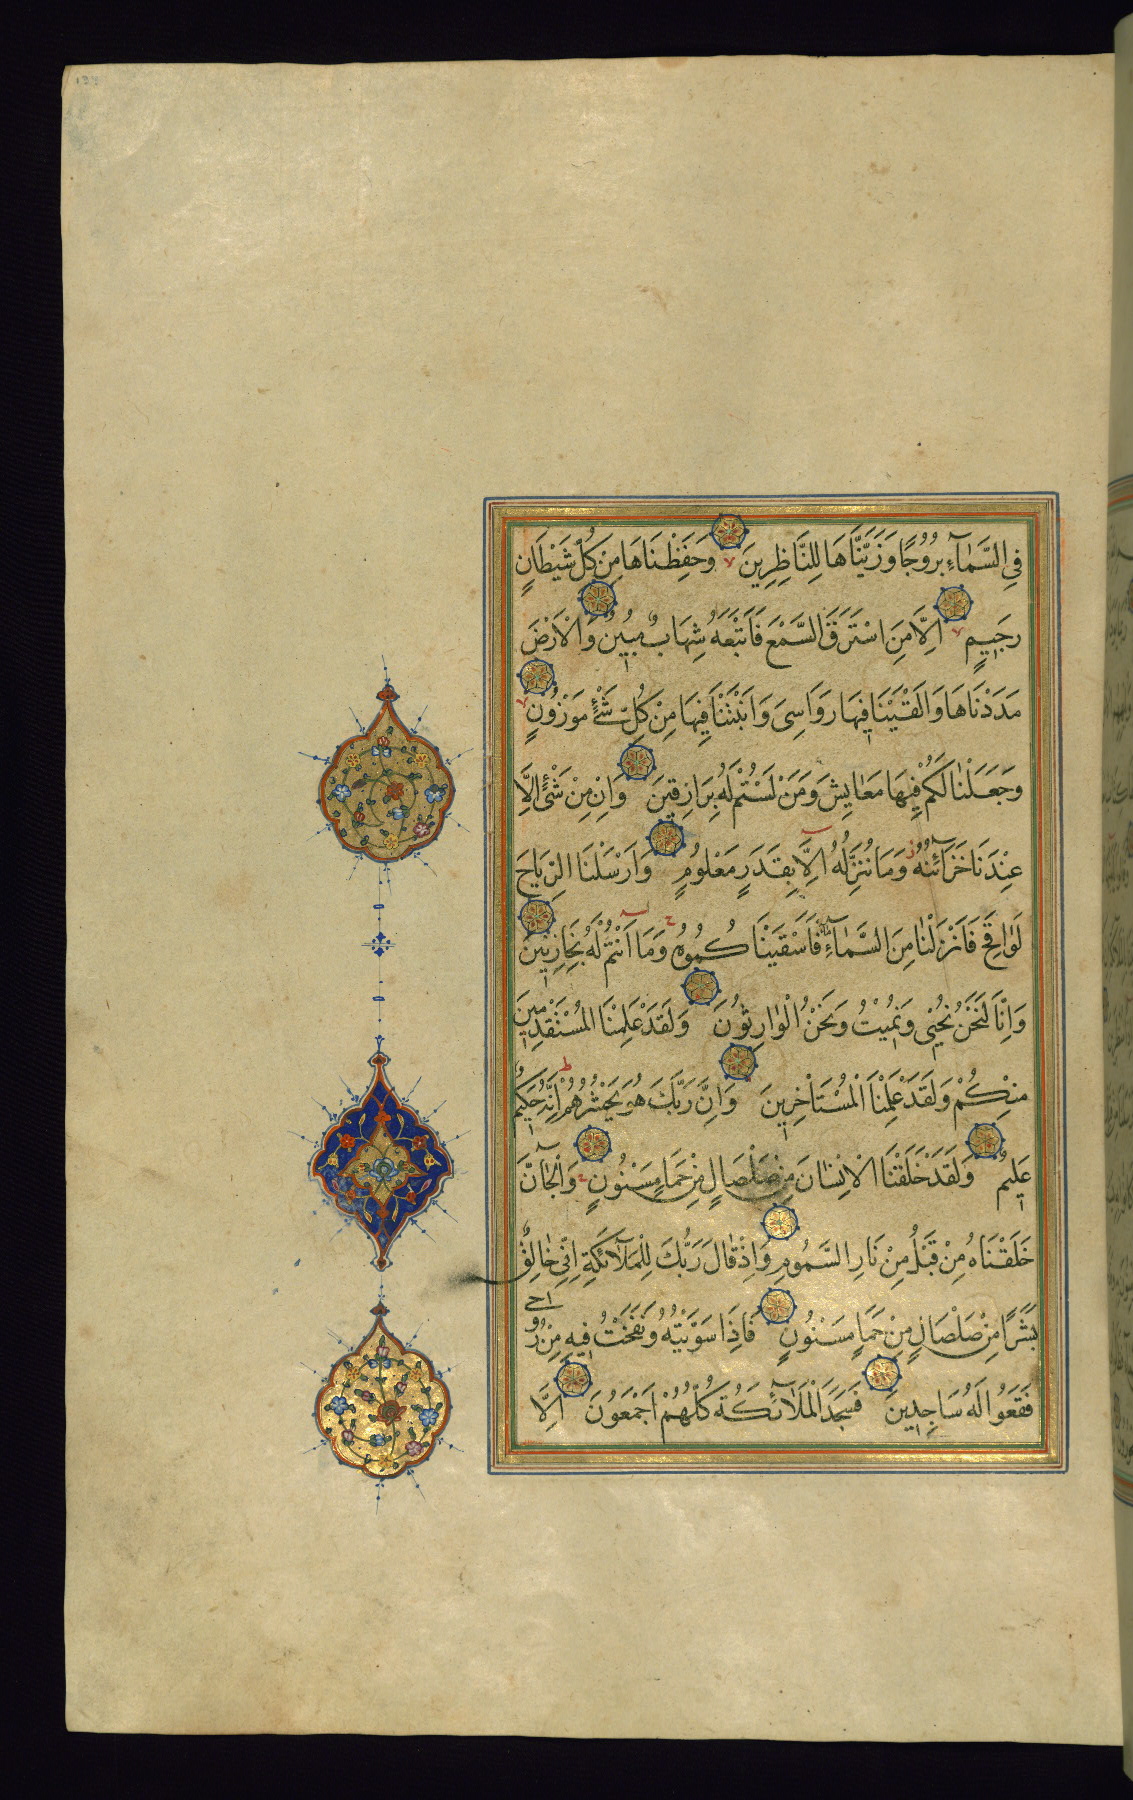 فِي السَّمَآءِ بُرُوجًا وَزَيَّنَّاهَا لِلنَّاظِرِينَ وَحَفِظْنَاهَا مِنْ كُلِّ شَيْطَانٍ
رَجِيمٍ اِلَّا مَنِ اسْتَرَقَ السَّمْعَ فَاَتْبَعَهُ شِهَابٌ مُبِينٌ وَالْاَرْضَ
مَدَدْنَاهَا وَاَلْقَيْنَا فِيهَا رَوَاسِيَ وَاَنْبَتْنَا فِيهَا مِنْ كُلِّ شَيْءٍ مَوْزُونٍ
وَجَعَلْنَا لَكُمْ فِيهَا مَعَايِشَ وَمَنْ لَسْتُمْ لَهُ بِرَازِقِينَ وَاِنْ مِنْ شَيْءٍ اِلَّا
عِنْدَنَا خَزَآئِنُهُ وَمَا نُنَزِّلُهُ اِلَّا بِقَدَرٍ مَعْلُومٍ وَاَرْسَلْنَا الرِّيَاحَ
لَوَاقِحَ فَاَنْزَلْنَا مِنَ السَّمَآءِ مَآءً فَاَسْقَيْنَاكُمُوهُ وَمَآ اَنْتُمْ لَهُ بِخَازِنِينَ
وَاِنَّا لَنَحْنُ نُحْيِي وَنُمِيتُ وَنَحْنُ الْوَارِثُونَ وَلَقَدْ عَلِمْنَا الْمُسْتَقْدِمِينَ
مِنْكُمْ وَلَقَدْ عَلِمْنَا الْمُسْتَاْخِرِينَ وَاِنَّ رَبَّكَ هُوَ يَحْشُرُهُمْ اِنَّهُ حَكِيمٌ
عَلِيمٌ وَلَقَدْ خَلَقْنَا الْاِنْسَانَ مِنْ صَلْصَالٍ مِنْ حَمَاٍ مَسْنُونٍ وَالْجَآنَّ
خَلَقْنَاهُ مِنْ قَبْلُ مِنْ نَارِ السَّمُومِ وَاِذْ قَالَ رَبُّكَ لِلْمَلَآئِكَةِ اِنِّي خَالِقٌ
بَشَرًا مِنْ صَلْصَالٍ مِنْ حَمَاٍ مَسْنُونٍ فَاِذَا سَوَّيْتُهُ وَنَفَخْتُ فِيهِ مِنْ رُوحِي
فَقَعُوا لَهُ سَاجِدِينَ فَسَجَدَ الْمَلَآئِكَةُ كُلُّهُمْ اَجْمَعُونَ اِلَّا